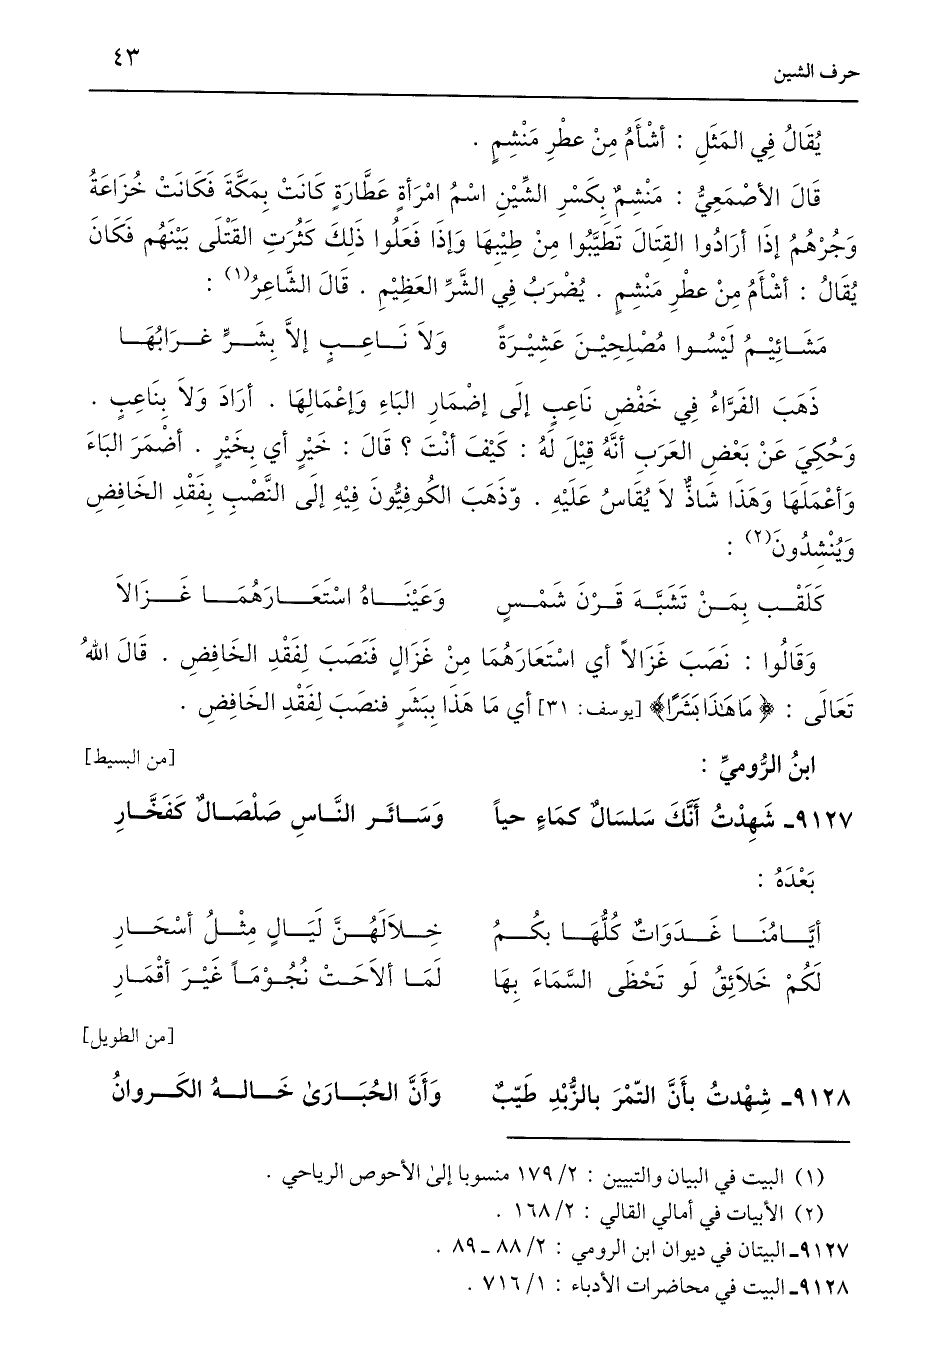 حرف الشين ٤٣
يُقَالُ فِي المَثَلِ : أشْأَمُ مِنْ عطْرِ مَنْشِمٍ .
قَالَ الأصْمَعِيُّ : مَنْشِمٌ بِكَسْرِ الشِّيْنِ اسْمُ امْرَأةٍ عَطَّارَةٍ كَانَتْ بِمَكَّةَ فَكَانَتْ خُزَاعَةُ
وَجُرْهُمُ إذَا أرَادُوا القِتَالَ تَطَيَّبُوا مِنْ طِيْبِهَا وَإذَا فَعَلُوا ذَلِكَ كَثُرَتِ القَتْلَى بَيْنَهُم فَكَانَ
يُقَالُ : أشْأَمُ مِنْ عطْرِ مَنْشِمٍ . يُضْرَبُ فِي الشَّرِّ العَظِيْمِ . قَالَ الشَّاعِرُ(١) :
مَشَائِيْمُ لَيْسُوا مُصْلِحِيْنَ عَشِيْرَةً وَلاَ نَاعِبٍ إلاَّ بِشَرٍّ غرَابُهَا
ذَهَبَ الفَرَّاءُ فِي خَفْضِ نَاعِبٍ إلَى إضْمَارِ البَاءِ وَإعْمَالِهَا . أرَادَ وَلاَ بِنَاعِبٍ .
وَحُكِيَ عَنْ بَعْضِ العَرَبِ أنَّهُ قِيْلَ لَهُ : كَيْفَ أنْتَ ؟ قَالَ : خَيْرٍ أي بِخَيْرٍ . أضْمَرَ البَاءَ
وَأعْمَلَهَا وَهَذَا شَاذٌّ لاَ يُقَاسُ عَلَيْهِ . وّذَهَبَ الكُوفِيُّونَ فِيْهِ إلى النَّصْبِ بِفَقْدِ الخَافِضِ
وَيُنْشِدُونَ(٢) :
كَلَقْبٍ بِمَنْ تَشَبَّهَ قَرْنَ شَمْسٍ وَعَيْنَاهُ اسْتَعَارَهُمَا غَزَالاَ
وَقَالُوا : نَصَبَ غَزَالاً أي اسْتَعَارَهُمَا مِنْ غَزَالٍ فَنَصَبَ لِفَقْدِ الخَافِضِ . قَالَ اللهُ
تَعَالَى : ﴿ مَا هَٰذَا بَشَرًا﴾ [يوسف: ٣١] أي مَا هَذَا بِبَشَرٍ فنصَبَ لِفَقْدِ الخَافِضِ .
ابنُ الرُّوميِّ : [من البسيط]
٩١٢٧ـ شَهِدْتُ أنَّكَ سَلسَالٌ كمَاءِ حياً وَسَائرَ النَّاسِ صَلْصَالٌ كَفَخَّارِ
بَعْدَهُ :
أيَّامُنَا غَدَوَاتٌ كُلُّهَا بكُمُ خِلاَلَهُنَّ لَيَالٍ مِثْلُ أسْحَارِ
لَكُمْ خَلاَئِقُ لَو تَحْظَى السَّمَاءَ بِهَا لَمَا ألاَحَتْ نُجُوْمَاً غَيْرَ أقْمَارِ
[من الطويل]
٩١٢٨ـ شِهْدتُ بأنَّ التّمْرَ بالزُّبْدِ طَيّبٌ وَأنَّ الحُبَارَىٰ خَالهُ الكَروانُ
(١) البيت في البيان والتبيين : ٢/ ١٧٩ منسوبا إلىٰ الأحوص الرياحي .
(٢) الأبيات في أمالي القالي : ٢/ ١٦٨ .
٩١٢٧ـ البيتان في ديوان ابن الرومي : ٢/ ٨٨ ـ ٨٩ .
٩١٢٨ـ البيت في محاضرات الأدباء : ١/ ٧١٦ .